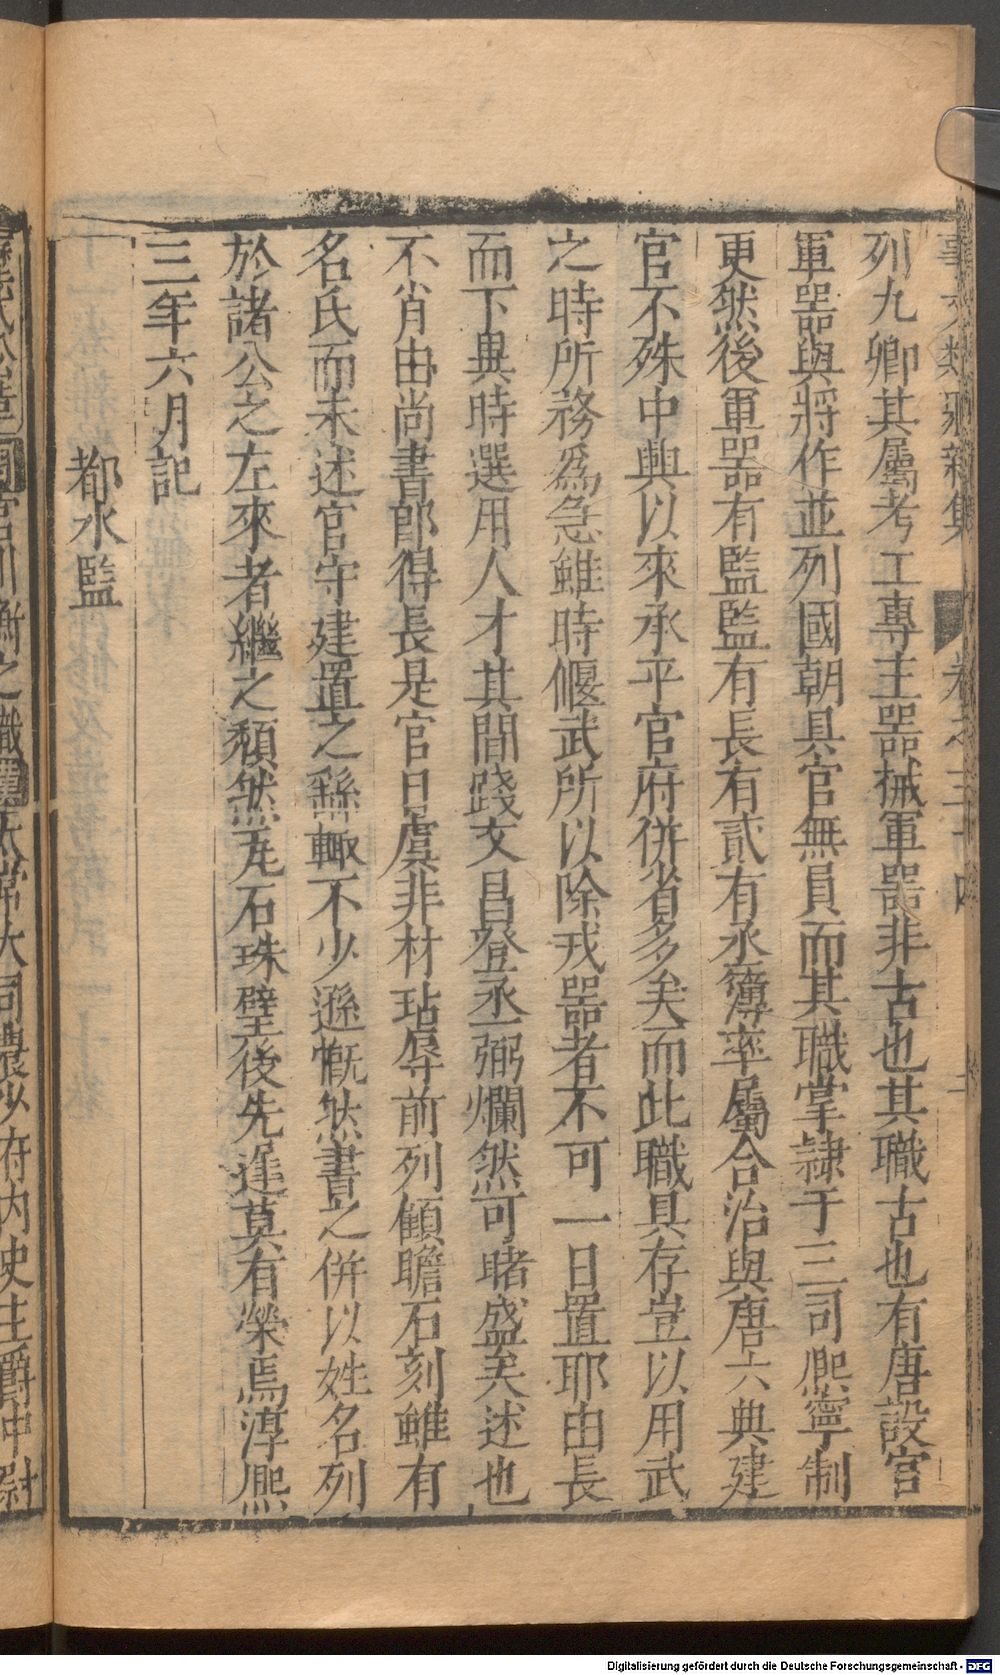 列九卿其屬考工專主器械軍器非古也其職古也有唐設官
軍器與將作並列國朝具官無員而其職掌隷于三司熈寧制
更然後軍器有監監有長有貳有丞簿率屬合治與唐六典建
官不殊中興以來承平官府併省多矣而此職具存豈以用武
之時所務爲急雖時偃武所以除戎器者不可一日置耶由長
而下異時選用人才其間踐文昌登丞弼爛然可睹盛矣述也
不肖由尚書郎得長是官日虞非材玷辱前列顧瞻石刻雖有
名氏而未述官守建置之繇輙不少遜慨然書之併以姓名列
於諸公之左來者繼之頺然瓦石珠璧後先逹莫有榮焉淳熈
三年六月記
都水監
周官川衡之職漢太常大司農少府内史主爵中尉
Digitalisierung gefördert durch die Deutsche Forschungsgemeinschaft - DFG